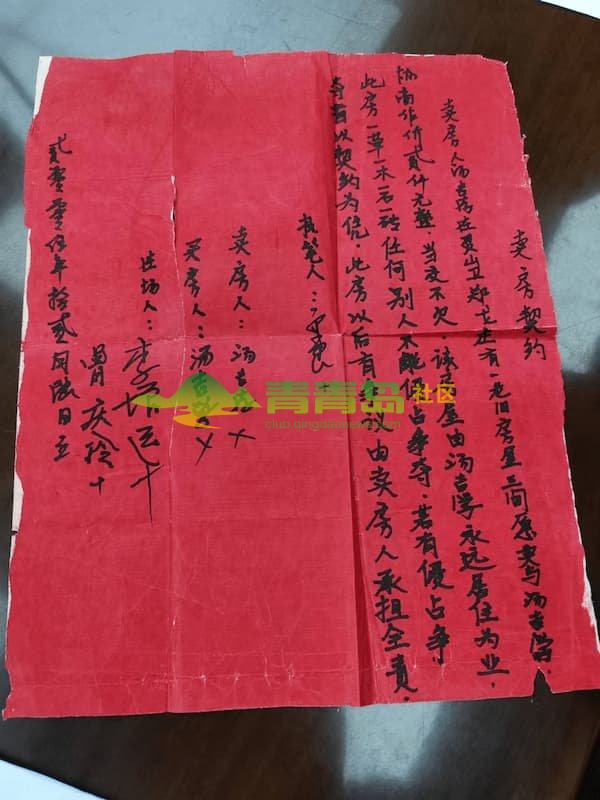 卖房契约
卖房人汤吉 有一老旧房屋三间愿卖与汤吉
协商作价贰仟元整，当交不欠，该房屋由汤吉学永远居住为业，
此房一草一木一石一砖任何别人不能侵占争夺，若有侵占争
夺者以契约为凭，此房以后有 由卖房人承担全责。
执笔人：
卖房人：汤吉
买房人：汤吉
在场人：李
庆
贰零零伍年拾贰月 日立
青青岛社区
club.qingdaonews.com